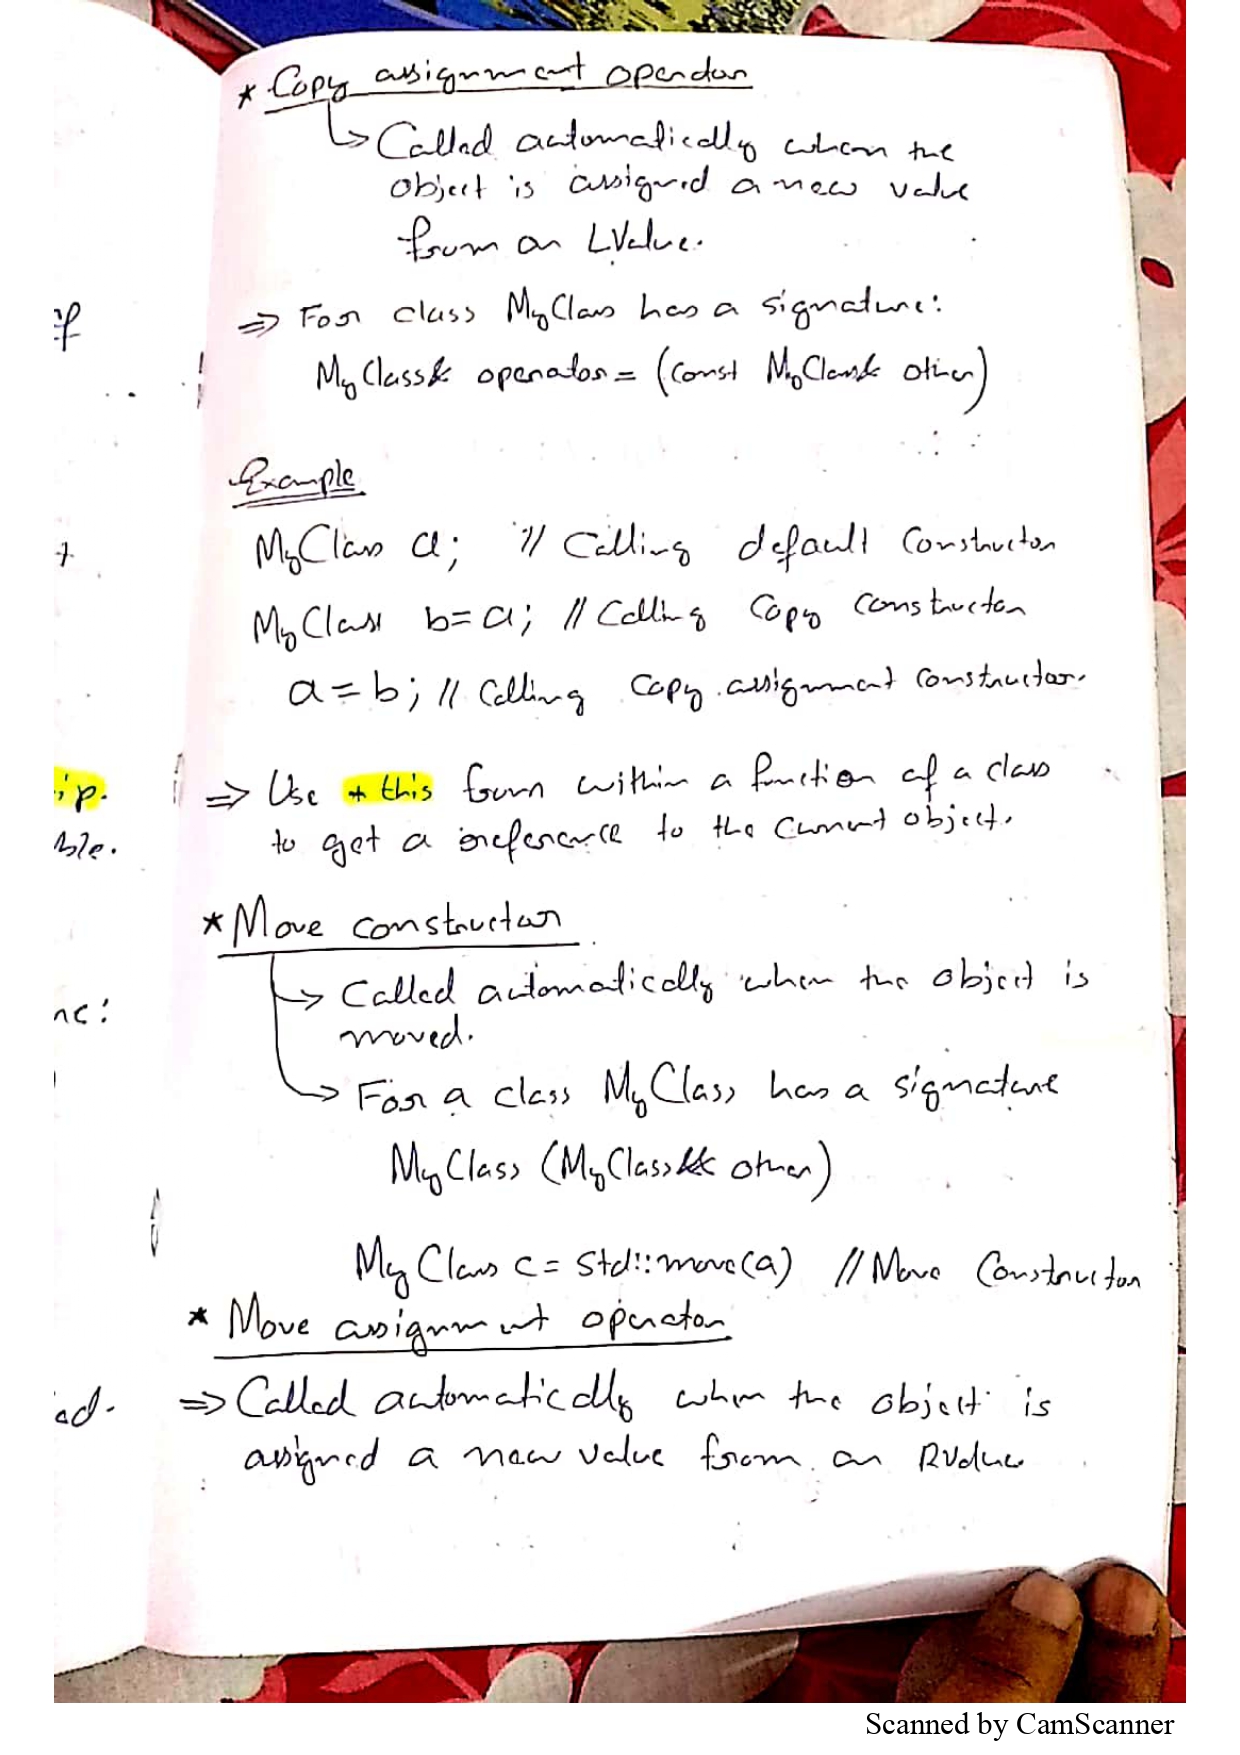 * Copy assignment operator
↳ Called automatically when the
object is assigned a new value
from an LValue.
⇒ For class MyClass has a signature:
MyClass& operator= (const MyClass& other)
Example
MyClass a; // Calling default constructor
MyClass b=a; // Calling copy constructor
a=b; // Calling copy assignment constructor.
⇒ Use *this from within a function of a class
to get a reference to the current object.
* Move constructor
→ Called automatically when the object is
moved.
→ For a class MyClass has a signature
MyClass (MyClass&& other)
MyClass c = std::move(a) // Move Constructor
* Move assignment operator
⇒ Called automatically when the object is
assigned a new value from an RValue
Scanned by CamScanner